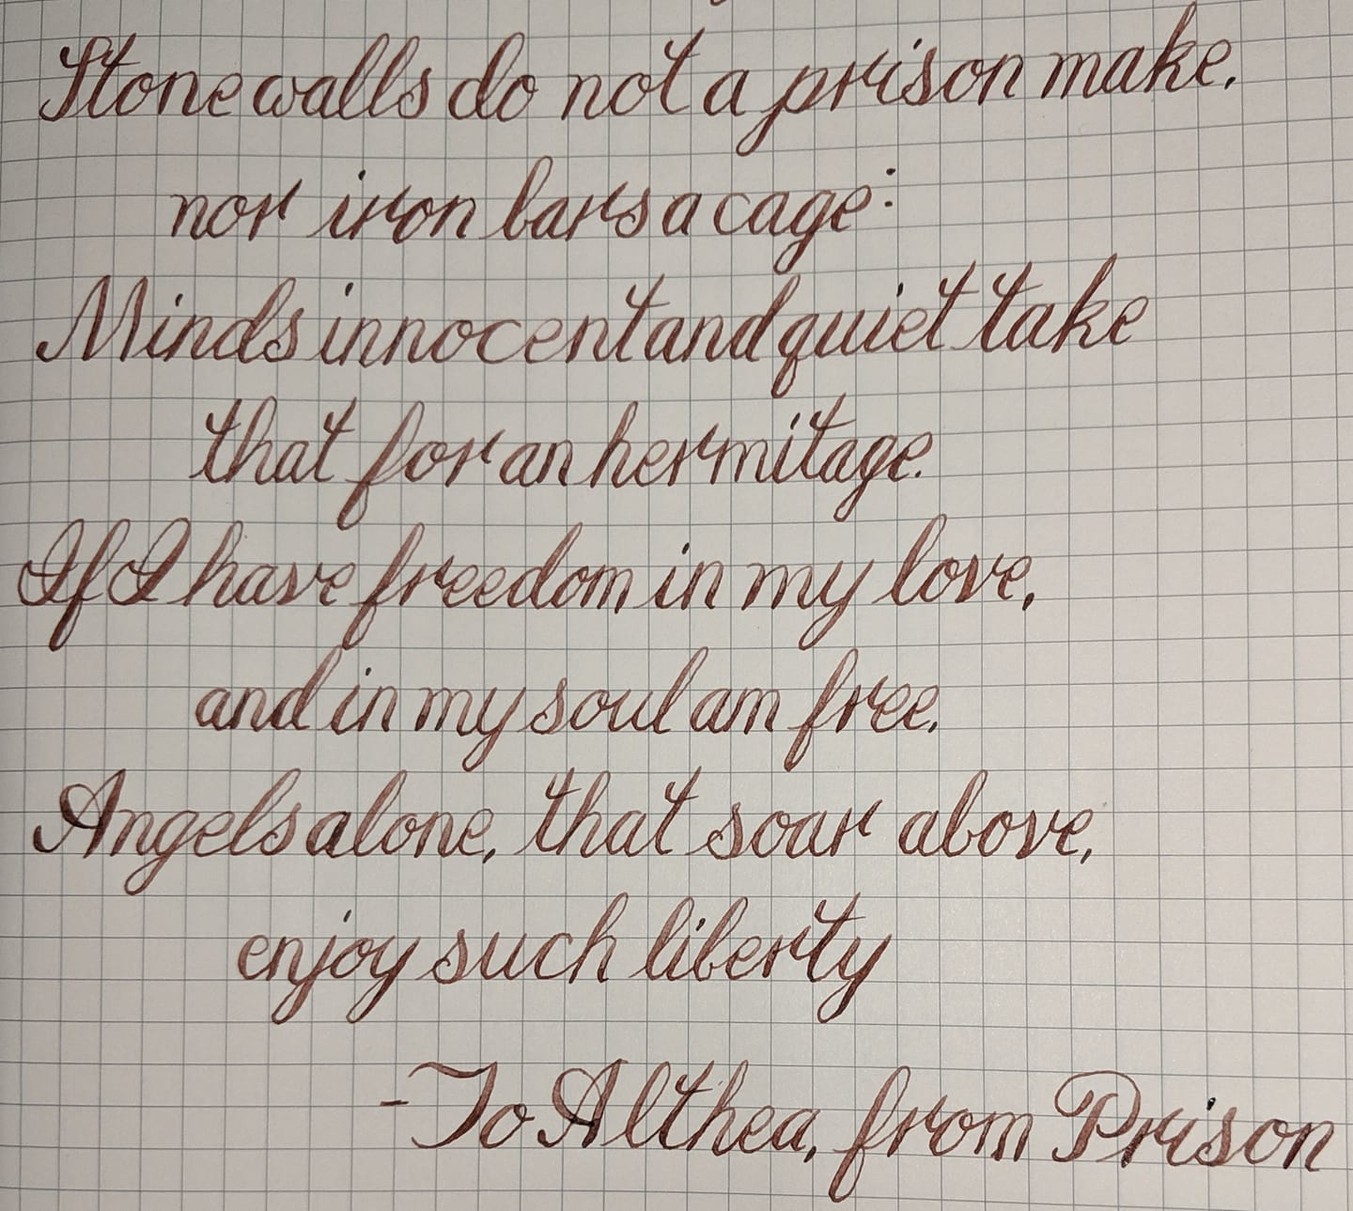 Stone walls do not a prison make,
nor iron bars a cage:
Minds innocent and quiet take
that for an hermitage.
If I have freedom in my love,
and in my soul am free,
Angels alone, that soar above,
enjoy such liberty
- To Althea, from Prison